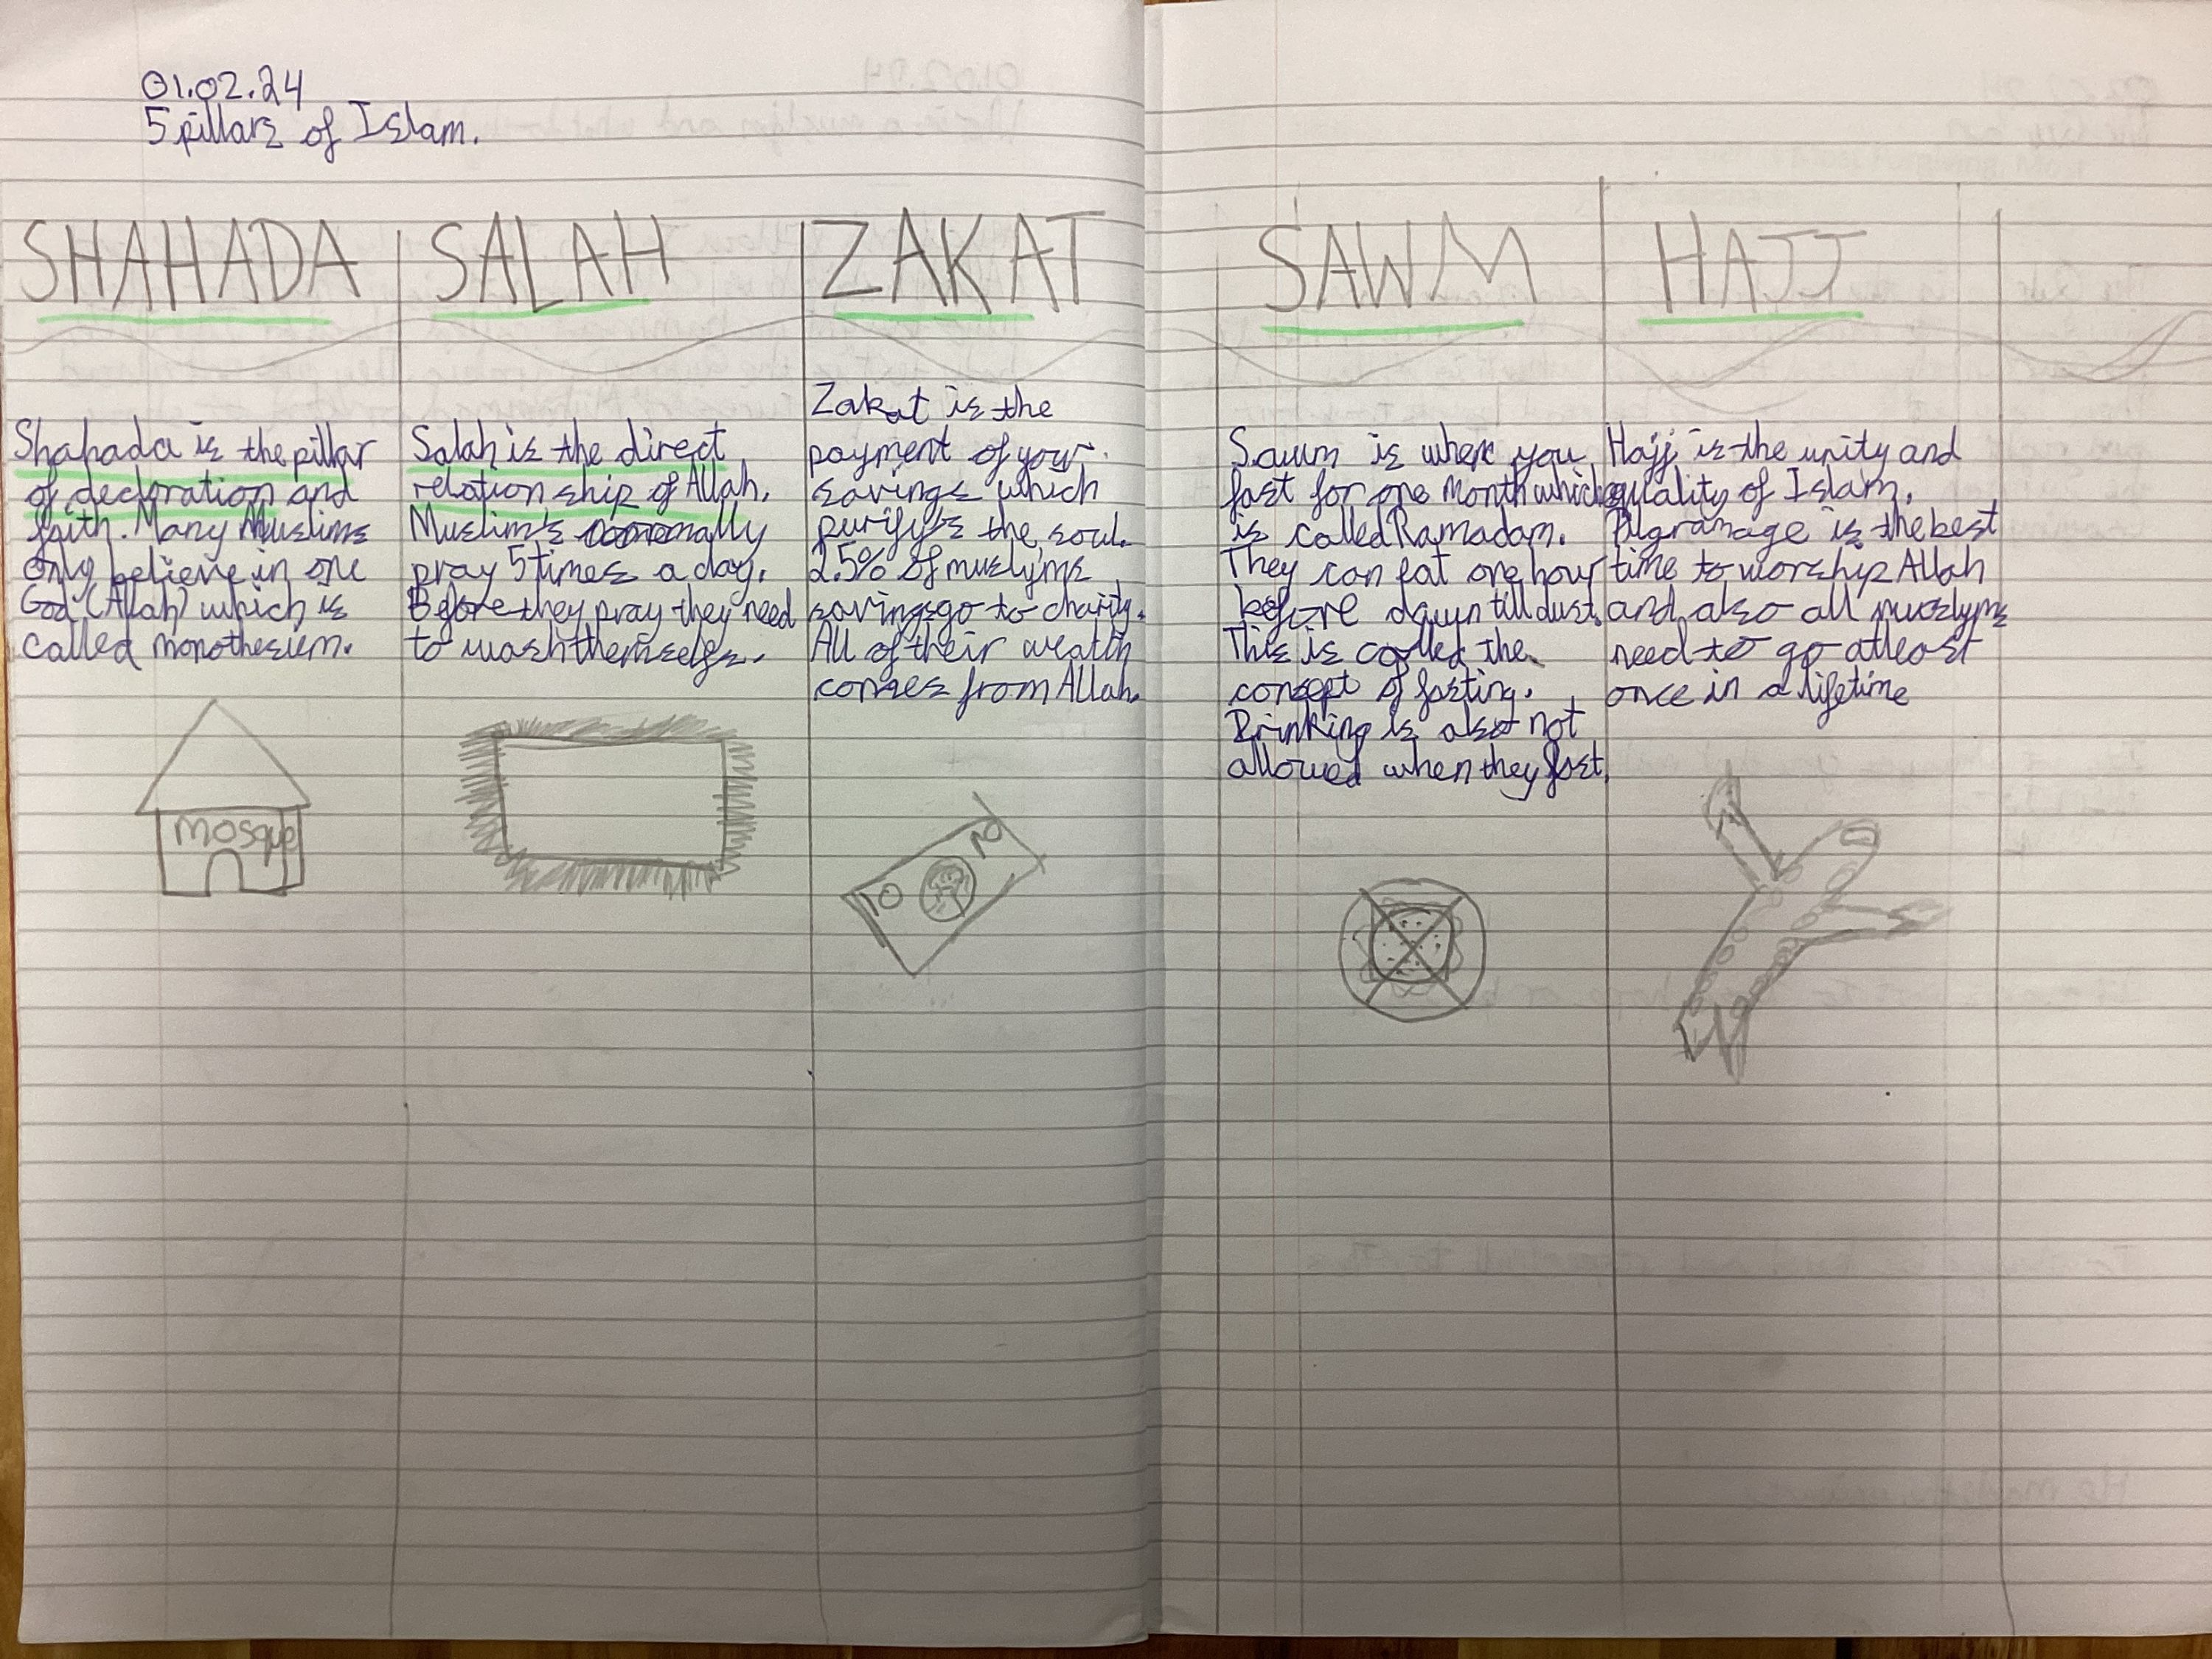 01.02.24
5 pillars of Islam.
SHAHADA
Shahada is the pillar
of decloration and
faith. Many Muslims
only believe in one
God (Allah) which is
called monothesiem.
mosque
SALAH
Salah is the direct
relationship of Allah.
Muslim's normally
pray 5 times a day.
Before they pray they need
to wash themselfs.
ZAKAT
Zakat is the
payment of your
savings which
purify's the soul.
2.5% of muslyms
savings go to charity.
All of their wealth
comes from Allah.
10
10
SAWM
Sawm is where you
fast for one month which
is called Ramadam.
They can eat one hour
before dawn till dust.
This is called the
concept of fasting.
Drinking is also not
allowed when they fast.
HAJJ
Hajj is the unity and
equality of Islam.
Pilgramage is the best
time to worship Allah
and also all muslyms
need to go atleast
once in a lifetime